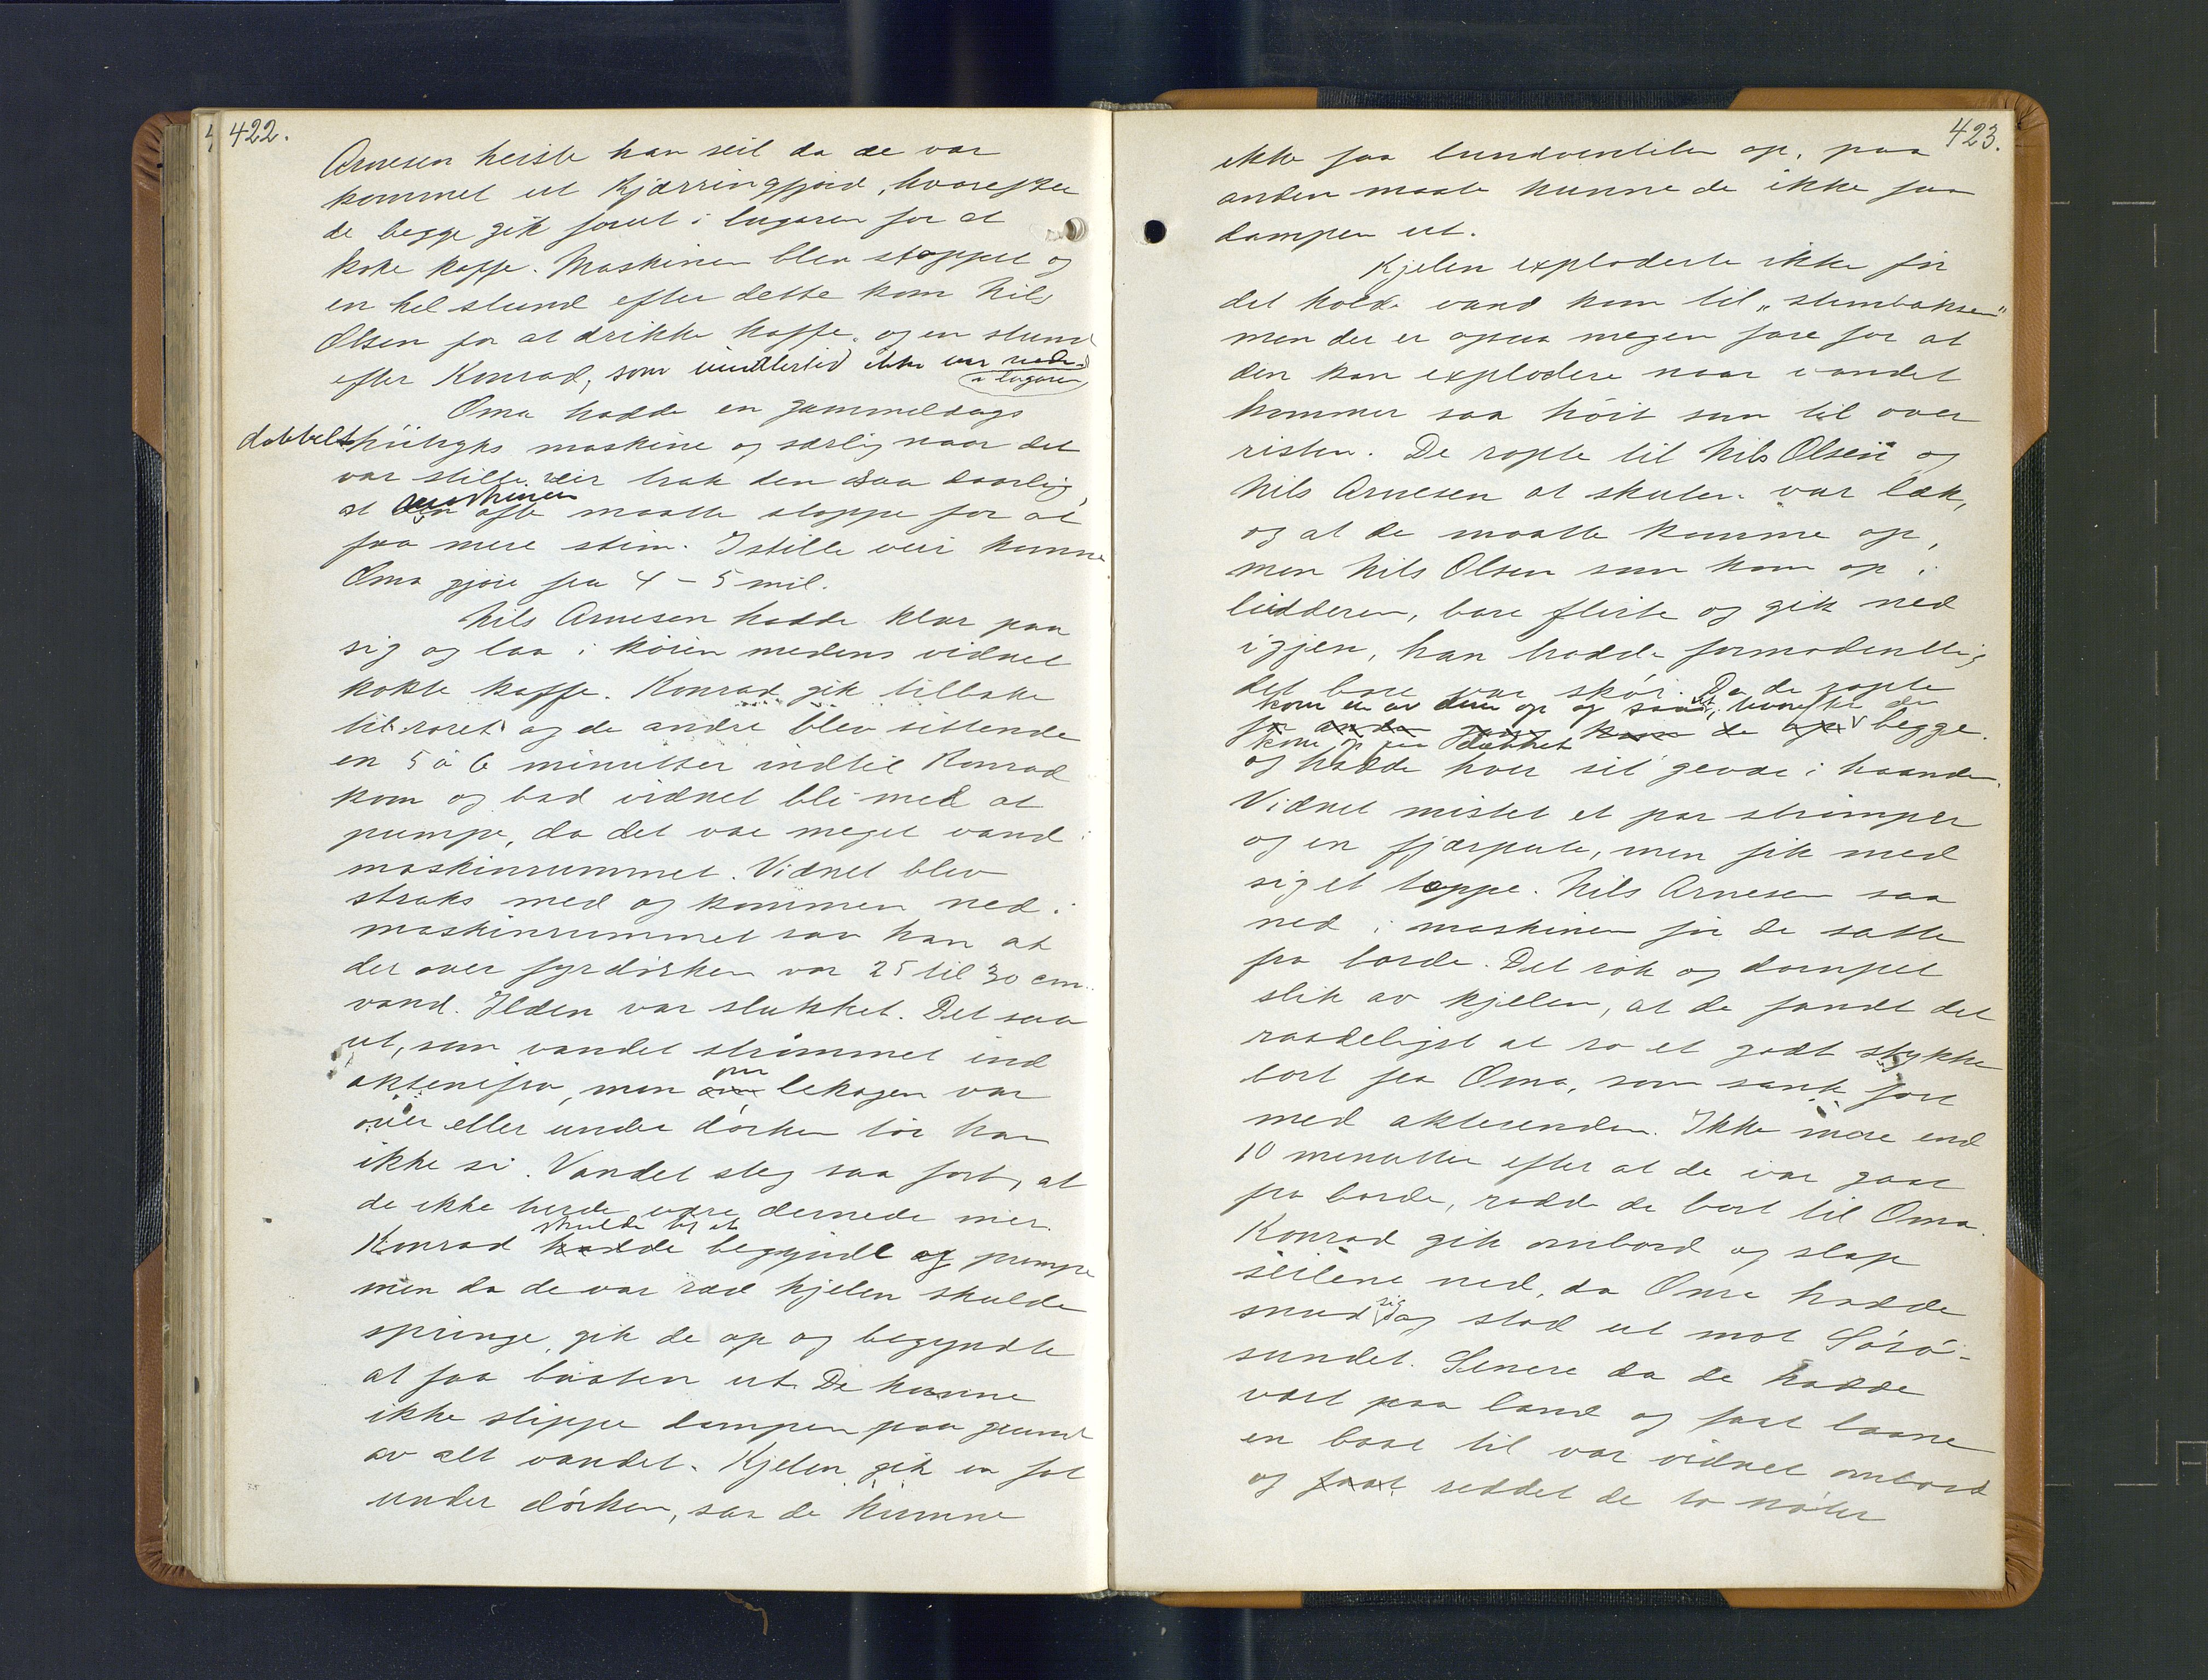 422.
Arnesen heiste han seil da de var
kommet ut Kjærringfjord, hvorefter
de begge gik forut i lugaren for at
koke kaffe. Maskinen blev stoppet og
en hel stund efter dette kom Nils
Olsen for at drikke kaffe. og en stund
efter Konrad, som imidlertid ikke var nede
i lugaren
Oma hadde en gammeldags
dobbelt høitryks maskine og særlig naar det
var stille veir trak den saa daarlig,
maskinen
at den ofte maatte stoppe for at
faa mere stim. I stille veir kunne
Oma gjøre fra 4 - 5 mil.
Nils Arnesen hadde klær paa
sig og laa i køien medens vidnet
kokte kaffe. Konrad gik tilbake
til roret og de andre blev sittende
en 5 à 6 minutter indtil Konrad
kom og bad vidnet bli med at
pumpe, da det var meget vand i
maskinrummet. Vidnet blev
straks med og kommen ned i
maskinrummet saa han at
der over fyrdørken var 25 til 30 cm.
vand. Ilden var slukket. Det saa
ut, som vandet strømmet ind
aktenifra, men om lekagen var
over eller under dørken tør han
ikke si. Vandet steg saa fort, at
de ikke turde være dernede mer.
skulde til at
Konrad hadde begyndt at pumpe
men da de var ræd kjelen skulde
springe, gik de op og begyndte
at faa baaten ut. De kunne
ikke slippe dampen paa grund
av alt vandet. Kjelen gik en fot
under dørken, saa de kunne
423.
ikke faa bundventilen op, paa
anden maate kunne de ikke faa
dampen ut.
Kjelen exploderte ikke før
det kolde vand kom til „stimboksen"
men der er ogsaa megen fare for at
den kan explodere naar vandet
kommer saa høit som til over
risten. De ropte til Nils Olsen og
Nils Arnesen at skuten var læk,
og at de maatte komme op,
men Nils Olsen som kom op i
leideren, bare flirte og gik ned
igjen, han trodde formodentlig
det bare var skøi. Da de ropte
kom en av dem op og saa ut, hvorefter de
for anden gang kom de op begge.
kom op paa dækket
og hadde hver sit gevær i haanden.
Vidnet mistet et par strømper
og en fjærpute, men fik med
sig et teppe. Nils Arnesen saa
ned i maskinen før de satte
fra borde. Det røk og dampet
slik av kjelen, at de fandt det
raadeligst at ro et godt stykke
bort fra Oma, som sank fort
med akterenden. Ikke mere end
10 minutter efter at de var gaat
fra borde, rodde de bort til Oma.
Konrad gik ombord og slap
seilene ned, da Oma hadde
snud sig og stod ut mot Sørø-
sundet. Senere da de hadde
vært paa land og faat laane
en baat til var vidnet ombord
og faat reddet de to nøter